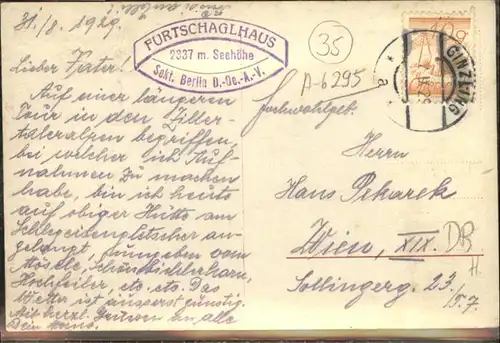 31./8. 1929.
FURTSCHAGLHAUS
2337 m. Seehöhe
Sekt. Berlin D.-Oe.-A.-V.
35
A-6295
GINZLING
a
Lieber Vater!
Auf einer längeren
Tour in den Ziller-
taleralpen begriffen,
bei welcher ich Auf-
nahmen zu machen
habe, bin ich heute
auf obiger Hütte am
Schlegeisengletscher an-
gelangt, umgeben vom
Mösele, Schönbichlerhorn,
Hochfeiler, etc. etc. Das
Wetter ist äusserst günstig.
Mit herzl. Grüssen an alle
Dein
Hochwohlgeb.
Herrn
Hans Pekarek
Wien, XIX. DB
H.
Sollingerg. 23.